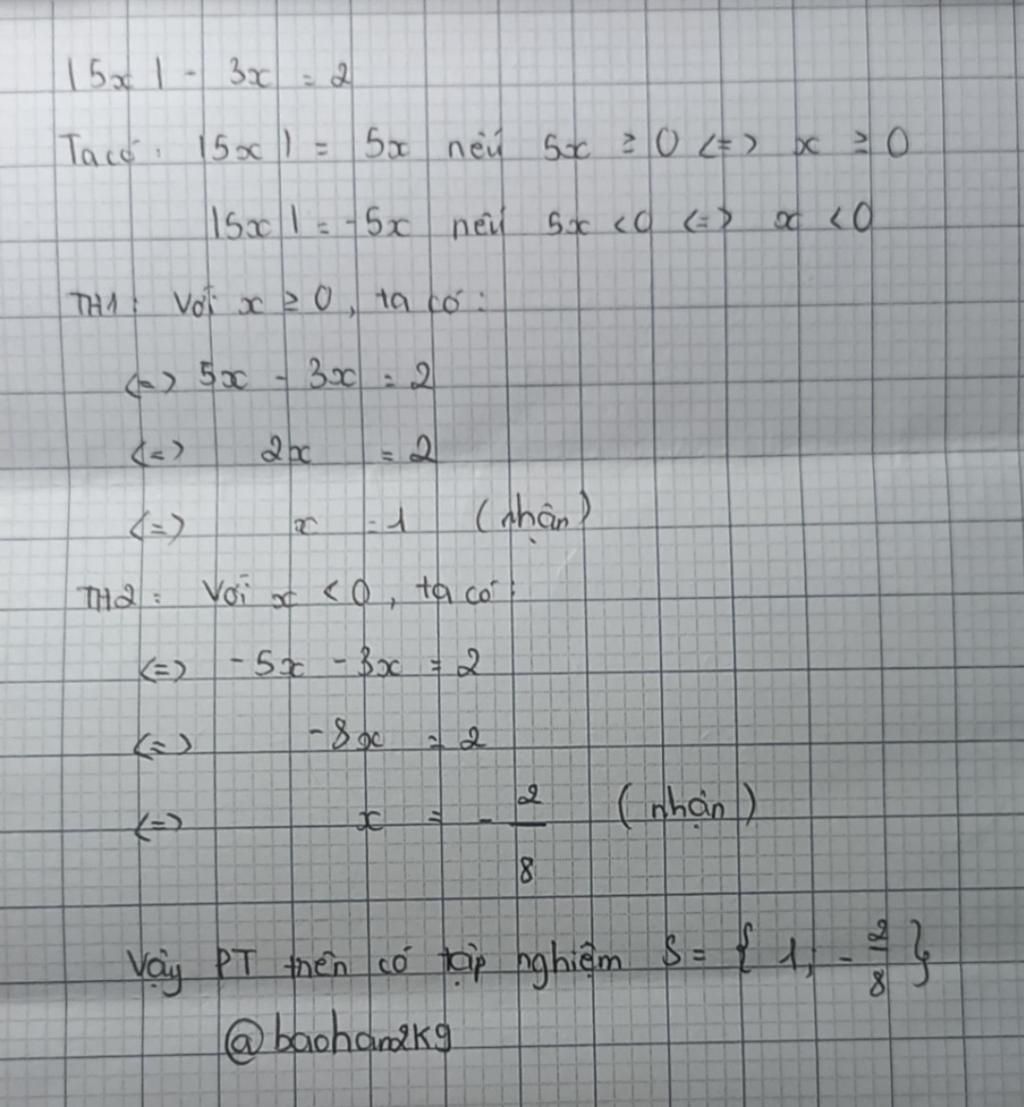 |5x| - 3x = 2
Ta có: |5x| = 5x nếu 5x ≥ 0 <=> x ≥ 0
|5x| = -5x nếu 5x < 0 <=> x < 0
TH1: Với x ≥ 0, ta có:
<=> 5x - 3x = 2
<=> 2x = 2
<=> x = 1 (nhận)
TH2: Với x < 0, ta có:
<=> -5x - 3x = 2
<=> -8x = 2
<=> x = -2/8 (nhận)
Vậy PT trên có tập nghiệm S = { 1; -2/8 }
@baohan2k9